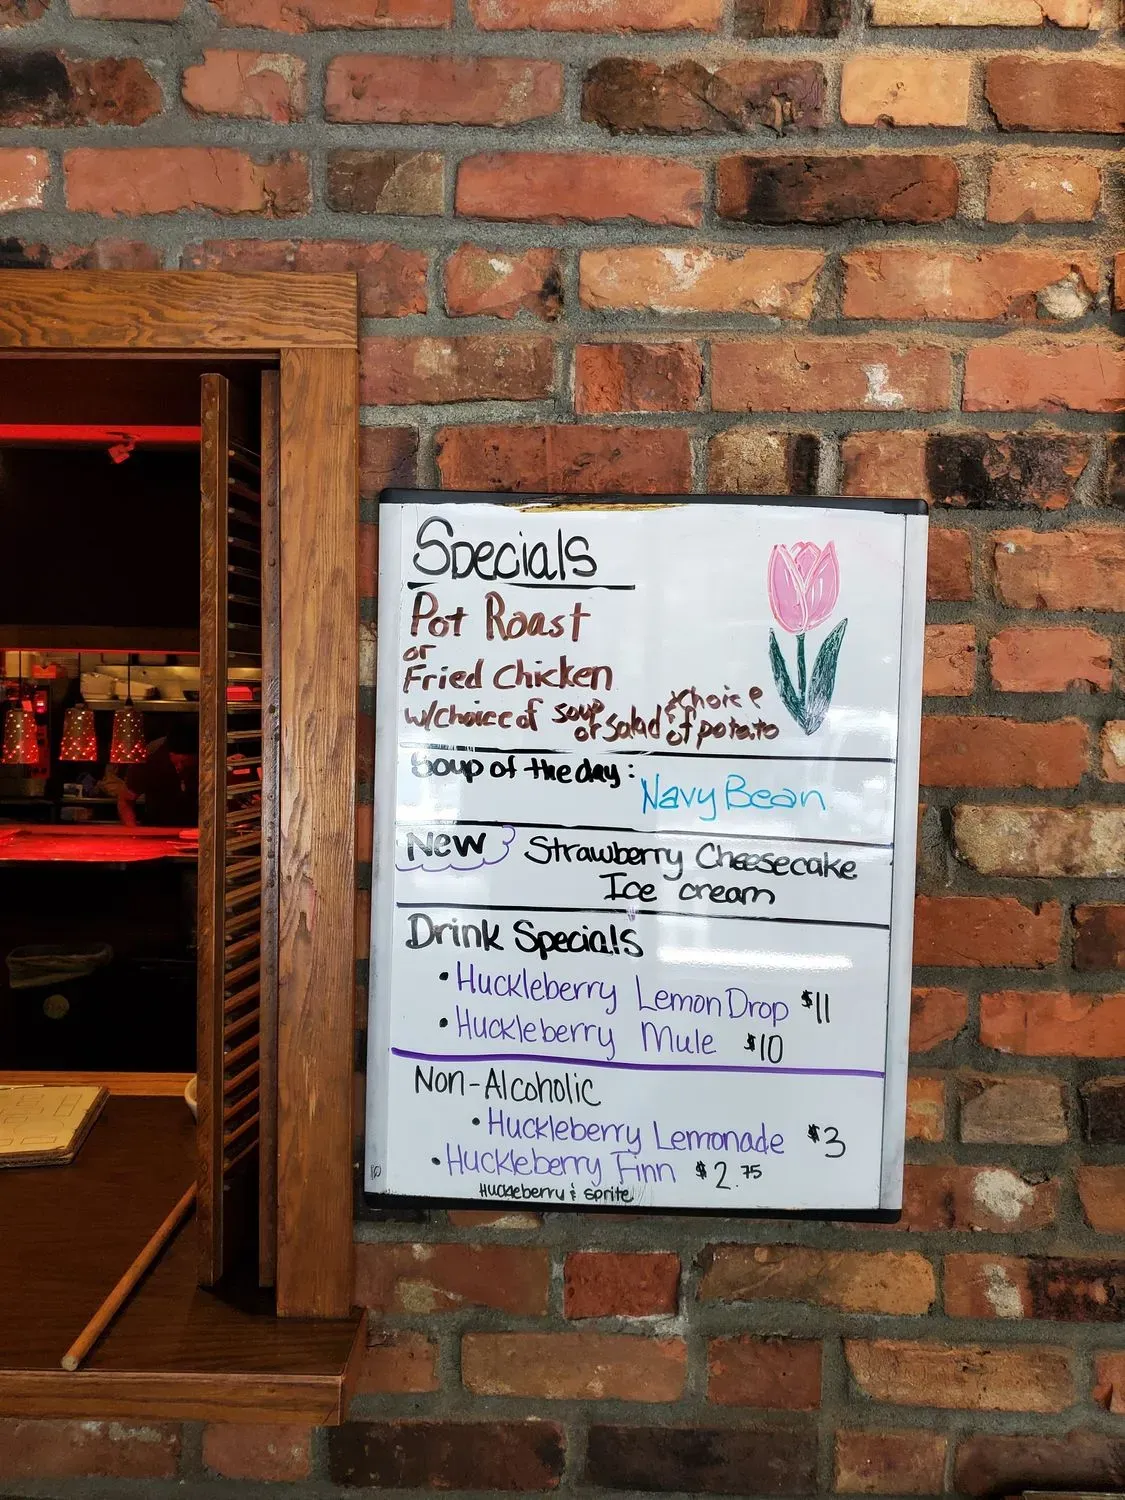 Specials
Pot Roast
or
Fried Chicken
w/choice of soup or salad & choice of potato
Soup of the day:
Navy Bean
New Strawberry Cheesecake
Ice cream
Drink Specials
• Huckleberry Lemon Drop $11
• Huckleberry Mule $10
Non-Alcoholic
• Huckleberry Lemonade $3
• Huckleberry Finn $2.75
Huckleberry & sprite